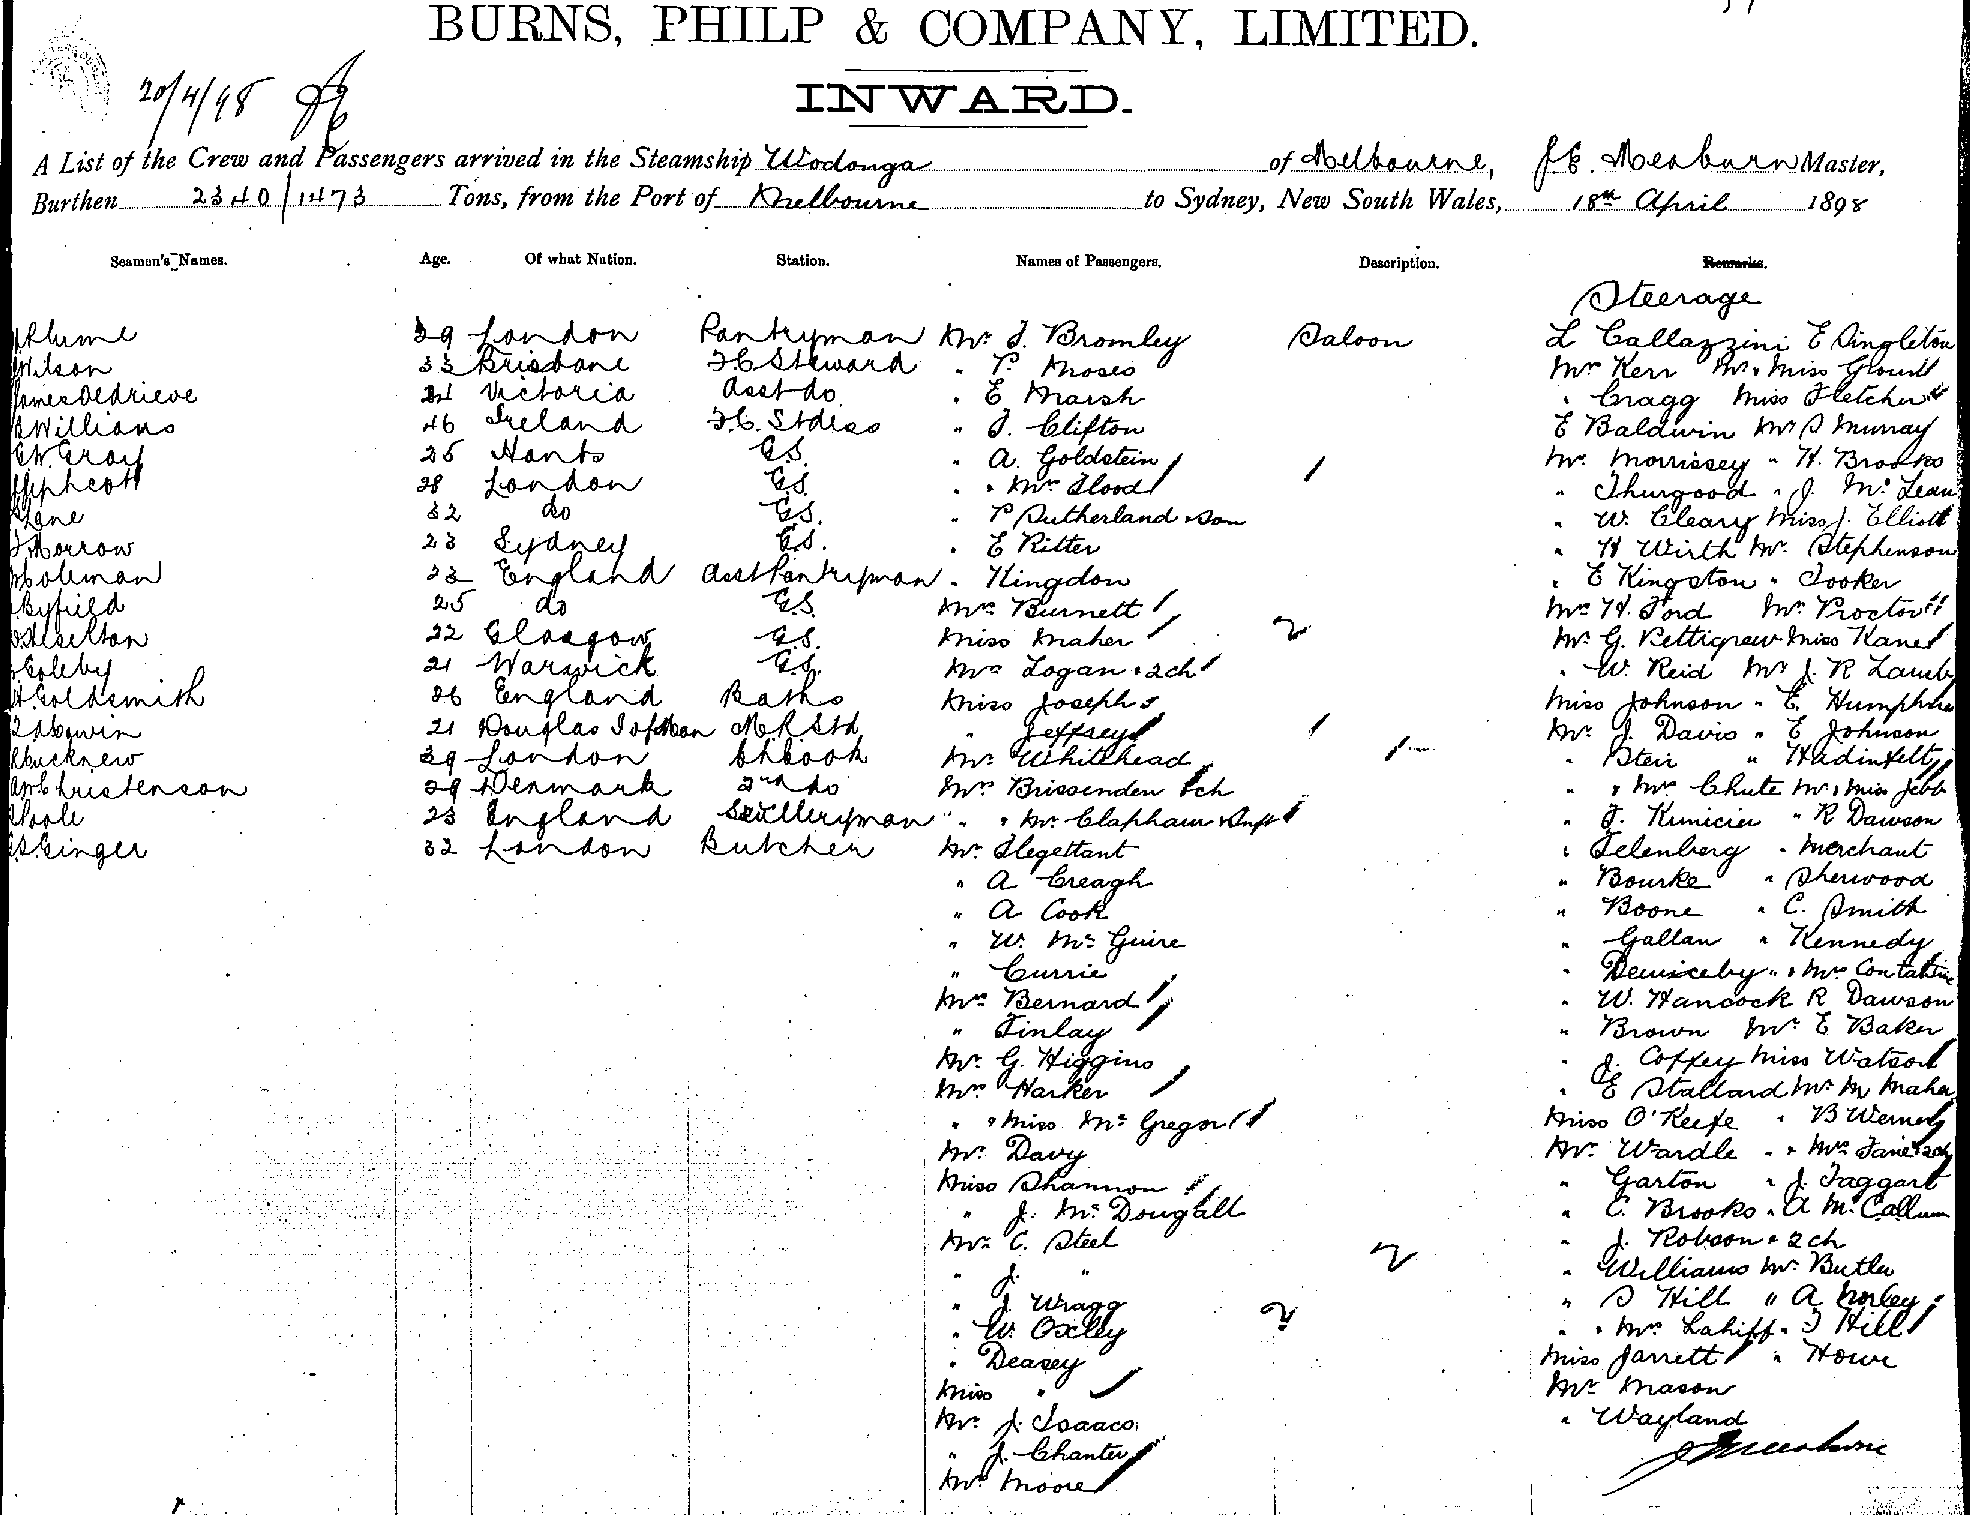 BURNS, PHILP & COMPANY, LIMITED.
INWARD.
20/4/98
A List of the Crew and Passengers arrived in the Steamship Wodonga of Melbourne, J.E. Meaburn Master,
Burthen 2340/1473 Tons, from the Port of Melbourne to Sydney, New South Wales, 18th April 1898
Seamen's Names. Age. Of what Nation. Station. Names of Passengers. Description. Remarks.
Steerage
Plume 39 London Pantryman Mr. J. Bromley Saloon L Callazzini E Singleton
Wilson 33 Brisbane F.C Steward " P. Moses Mr Kerr Mr & Miss
James Oldrieve 24 Victoria Asst do. " E Marsh " Cragg Miss Fletcher
Williams 46 Ireland F.C. Stdess " J. Clifton E Baldwin Mr S Murray
Gray 25 Hants G.S. " A. Goldstein Mr. Morrissey " H. Brooks
28 London G.S. " & Mrs Flood " Thurgood " J. McLean
Lane 32 do G.S. " P Sutherland & Son " W. Cleary Miss J. Elliott
Morrow 23 Sydney G.S. " E Ritter " H Wirth Mr. Stephenson
Coleman 23 England Asst Pantryman " Kingdon " E Kingston " Tooker
Byfield 25 do G.S. Mrs Burnett Mr H. Ford Mrs Proctor
Heselton 22 Glasgow G.S. Miss Maher 2 Mr G. Pettigrew Miss Kane
Coleby 21 Warwick G.S. Mrs Logan & 2 ch " W. Reid Mr J. R Lamb
Goldsmith 36 England Baths Miss Josephs Miss Johnson " E. Humphries
21 Douglas I of Man M.R Std " Jeffreys Mr. J. Davis " E Johnson
Bucknew 39 London Ch Cook Mr. Whitehead " Steir "
Christenson 29 Denmark 2nd do Mrs Brissenden & ch " & Mrs Chute Mr & Miss Jebb
Poole 23 England Sculleryman " & Mrs Clapham & Inft " J. " R Dawson
Ginger 32 London Butcher Mr. Flegeltant " Felenberg " Merchant
" A Creagh " Bourke " Sherwood
" A Cook " Boone " C. Smith
" W. McGuire " Gallan " Kennedy
" Currie " " & Mrs
Mrs Bernard " W. Hancock R Dawson
" Finlay " Brown Mr. E Baker
Mr. G. Higgins " J. Coffey Miss Watson
Mrs Harker " E Stallard Mr M Maher
" & Miss McGregor Miss O'Keefe " B Werner
Mr. Davy Mr. Wardle " & Mrs
Miss Shannon " Garton " J. Taggart
" J. McDougall " C. Brooks " A McCallum
Mr C. Steel 2 " J. Robson & 2 ch
" J. " " Williams Mr. Butler
" J. Wragg 2 " S Hill " A Morley
" W. Oxley " & Mrs Lahiff " J Hill
" Deasey Miss Jarrett " Howe
Miss " Mr. Mason
Mr. J. Isaacs " Wayland
" J. Chanter
Mrs Moore